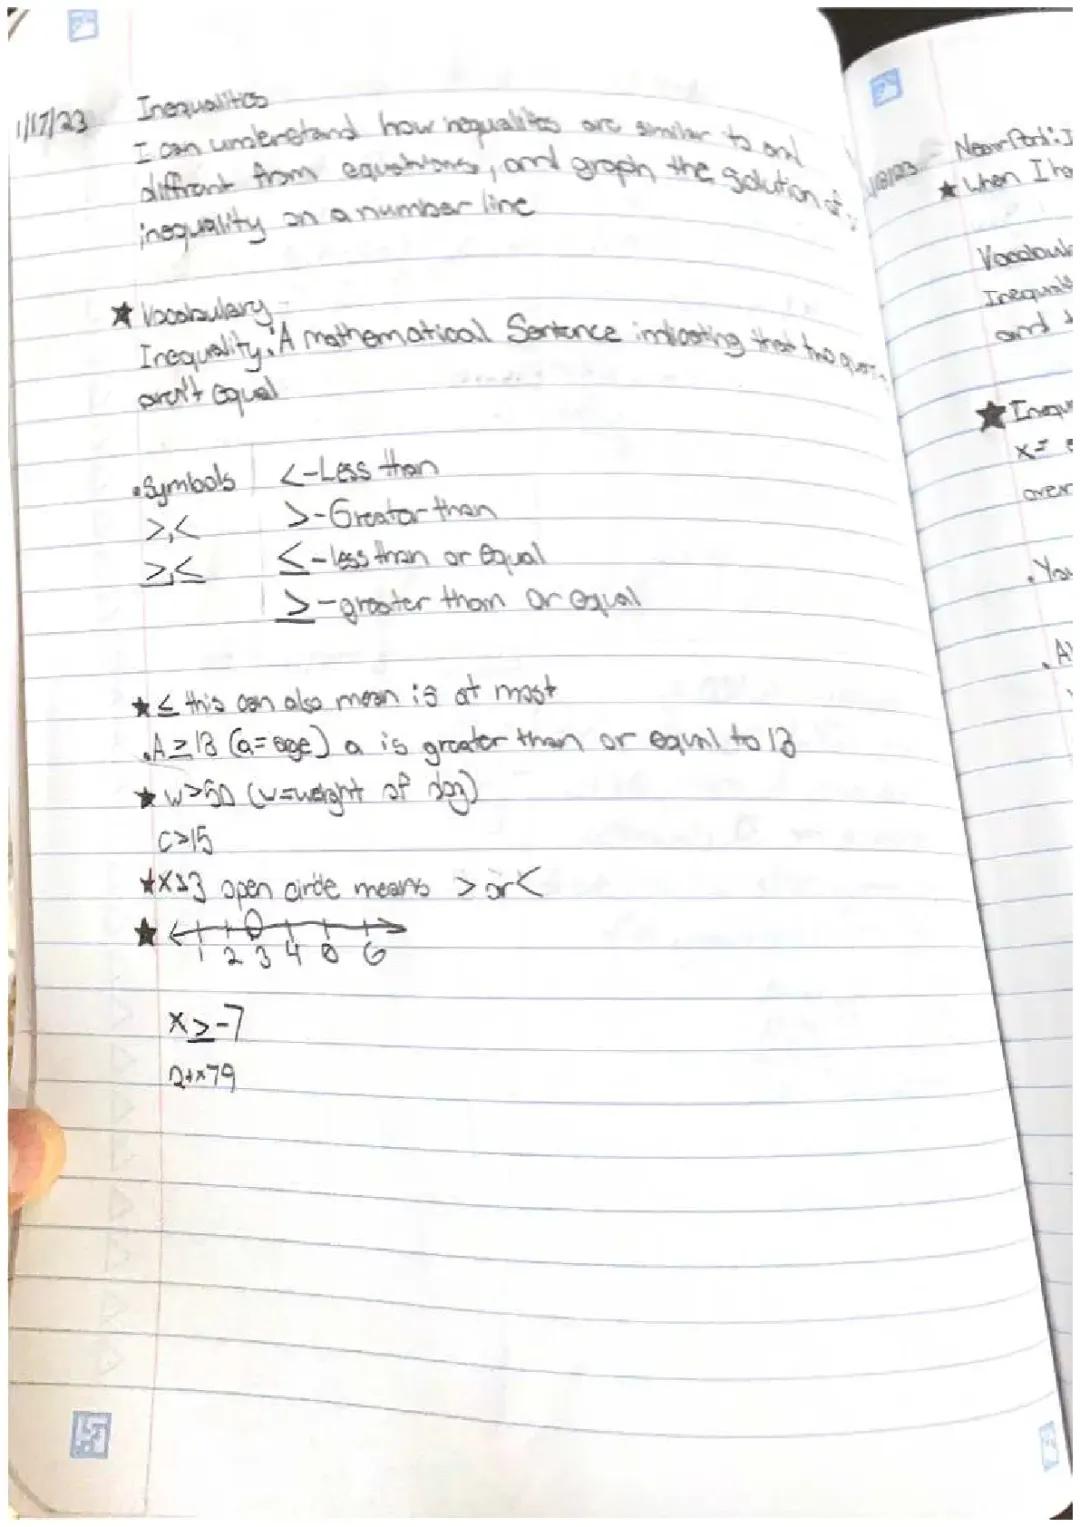 1/17/23 Inequalities
I can understand how inequalites are similar to and
diffrent from equations, and graph the solution of
inequality on a number line
★ Vocabulary
Inequality: A mathematical Sentence indicating that two
aren't equal
• Symbols <-Less than
>,< >-Greater than
≥,≤ ≤-less than or equal
≥-greater than or equal
★ ≤ this can also mean is at most
• A ≥ 13 (a=age) a is greater than or equal to 13
★ w>50 (w=weight of dog)
c>15
★ open circle means > or <
★ 1 2 3 4 5 6
x≥-7
1/18/23 Near Pod: I
★ When I
Vocabul
Inequal
and
★ Inequ
x=
over
• You